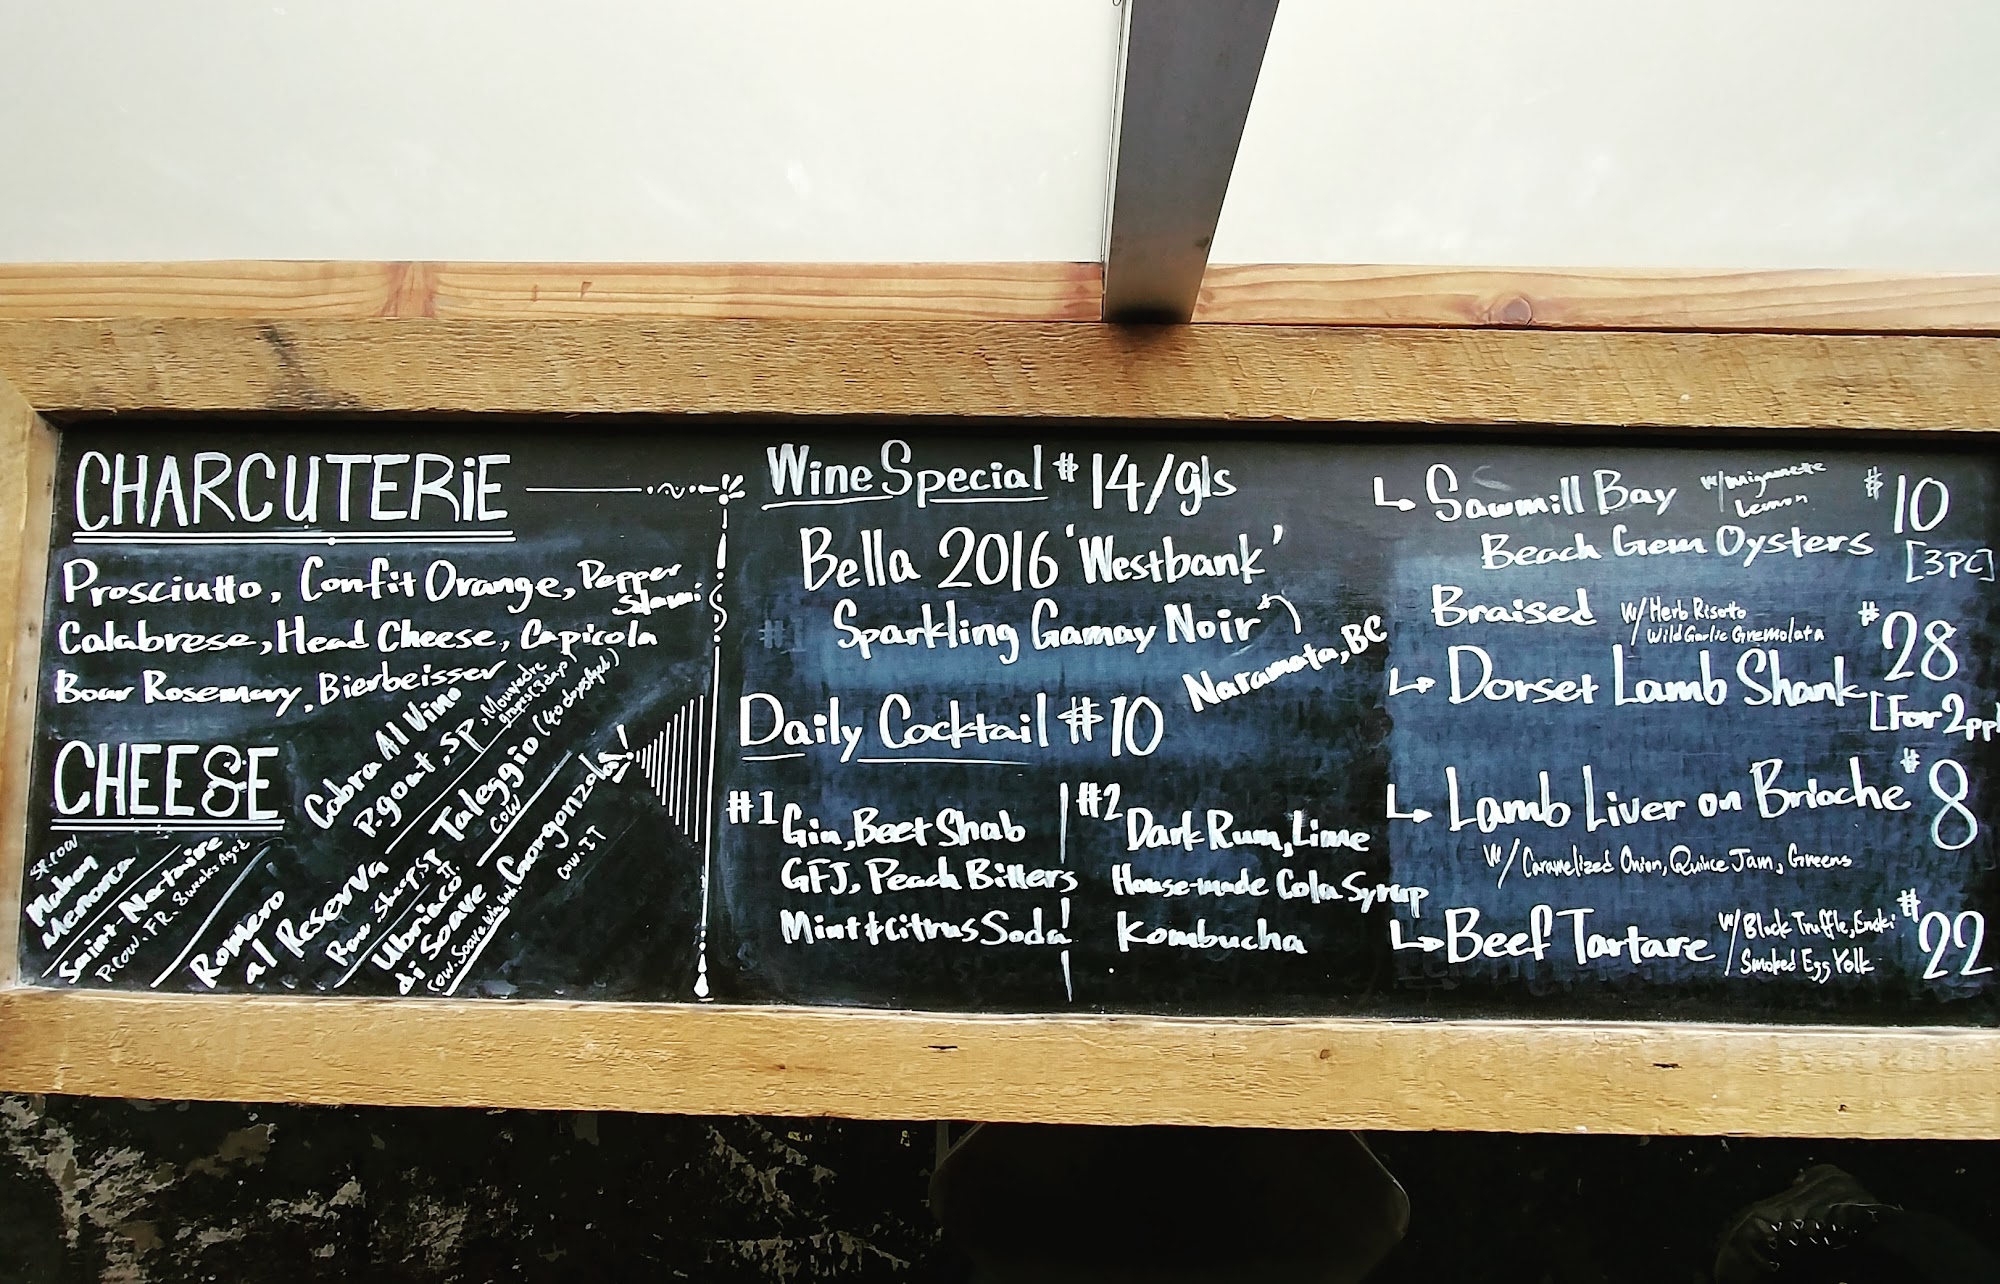 CHARCUTERiE
Prosciutto, Confit Orange, Pepper Salami
Calabrese, Head Cheese, Capicola
Boar Rosemary, Bierbeisser
CHEESE
SP. COW
Mahon
Menorca
Saint-Nectaire
P.COW. FR. 8 weeks Aged
Romero
al Reserva
Raw Sheep. SP
Cabra Al Vino
P.goat, SP, Mourvedre
grapes (3 days)
Taleggio (40 days aged)
COW IT.
Ubriaco
di Soave
COW. Soave wine
Gorgonzola!
COW. IT
Wine Special $14/gls
Bella 2016 'Westbank'
Sparkling Gamay Noir
Naramata, BC
Daily Cocktail $10
#1 Gin, Beet Shrub
GFJ, Peach Bitters
Mint & Citrus Soda
#2 Dark Rum, Lime
House-made Cola Syrup
Kombucha
Sawmill Bay w/ mignonette $10
Lemon
Beach Gem Oysters [3PC]
Braised w/ Herb Risotto $28
Wild Garlic Gremolata
Dorset Lamb Shank [For 2ppl
Lamb Liver on Brioche $8
w/ Caramelized Onion, Quince Jam, Greens
Beef Tartare w/ Black Truffle, Enoki $22
Smoked Egg Yolk